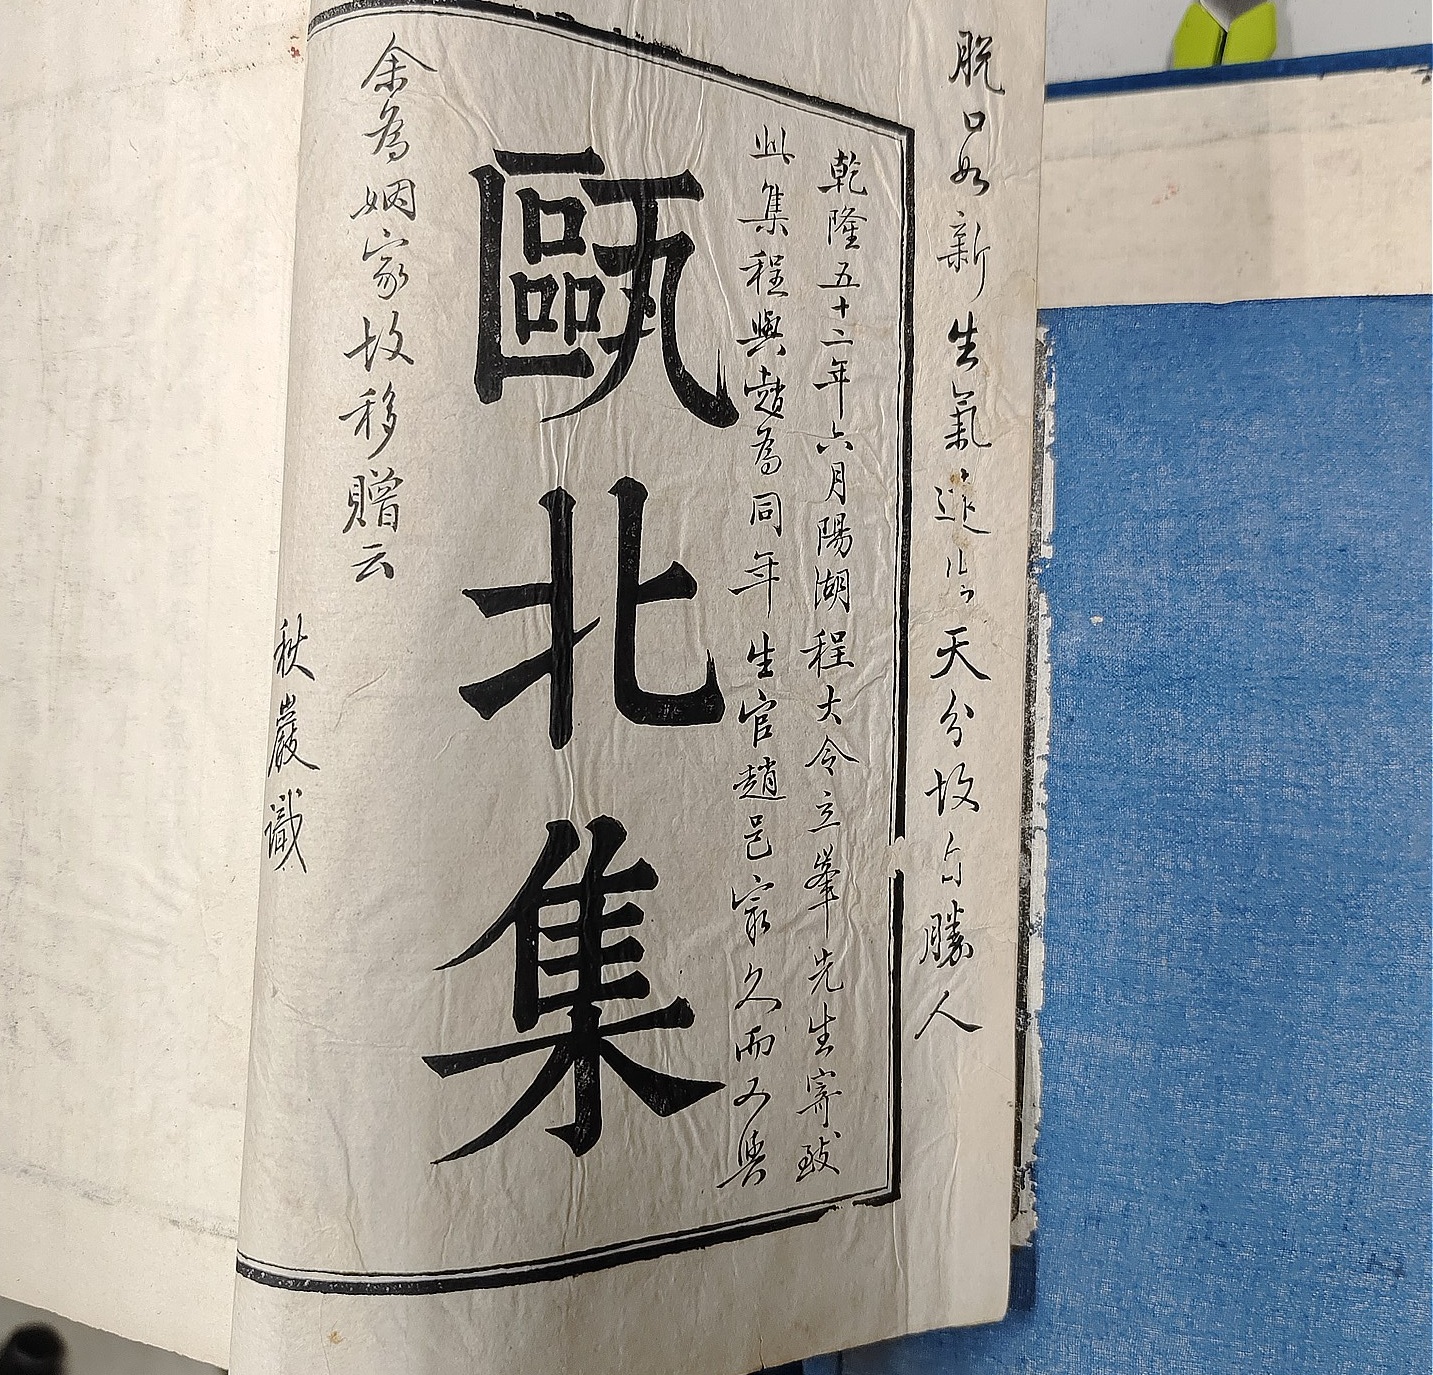 脫口如新生氣遠出天分故自勝人
乾隆五十二年六月陽湖程大令立峯先生寄致
此集程與趙為同年生官趙邑宰久而又與
甌北集
余為姻家故移贈云
秋巖識